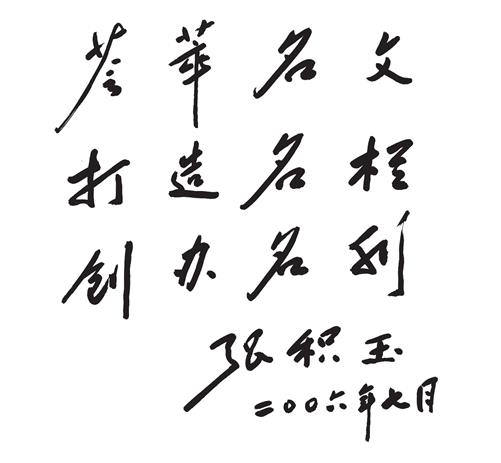 荟萃名文
打造名栏
创办名刊
张积玉
二〇〇六年七月